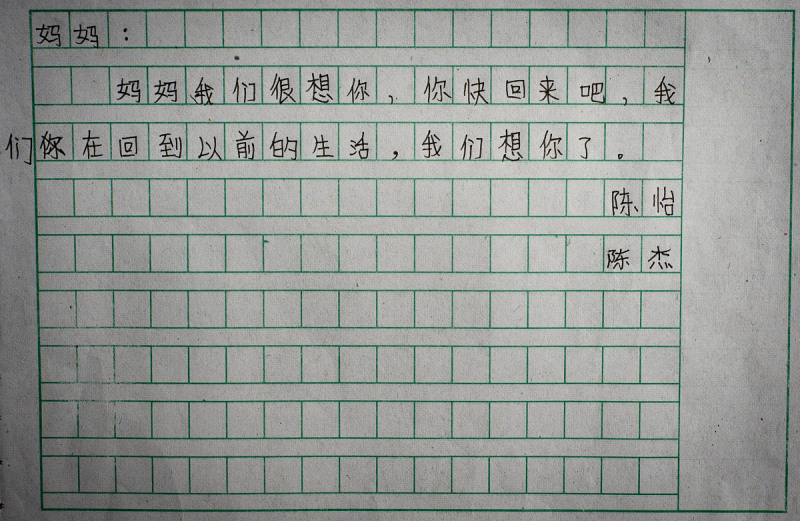 妈妈：
妈妈我们很想你，你快回来吧，我
们你在回到以前的生活，我们想你了。
陈怡
陈杰